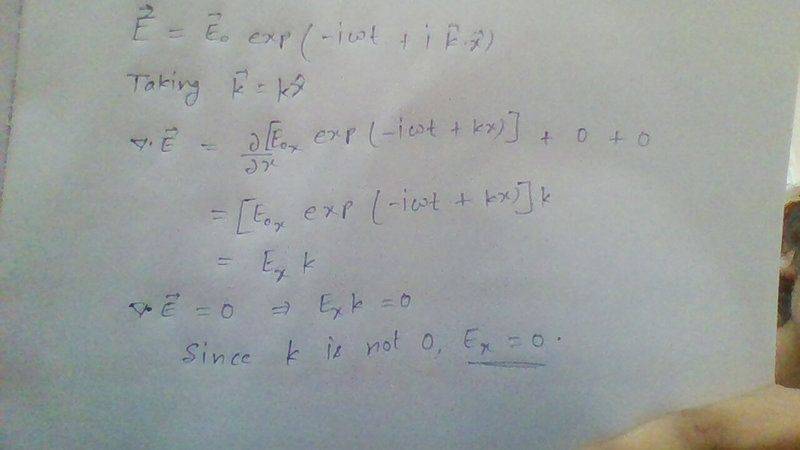 E⃗ = E⃗₀ exp(-iωt + i k⃗.x⃗)
Taking k⃗ = kx̂
∇.E⃗ = ∂/∂x [E₀ₓ exp(-iωt + kx)] + 0 + 0
= [E₀ₓ exp(-iωt + kx)]k
= Eₓ k
∇.E⃗ = 0 ⇒ Eₓk = 0
Since k is not 0, Eₓ = 0.